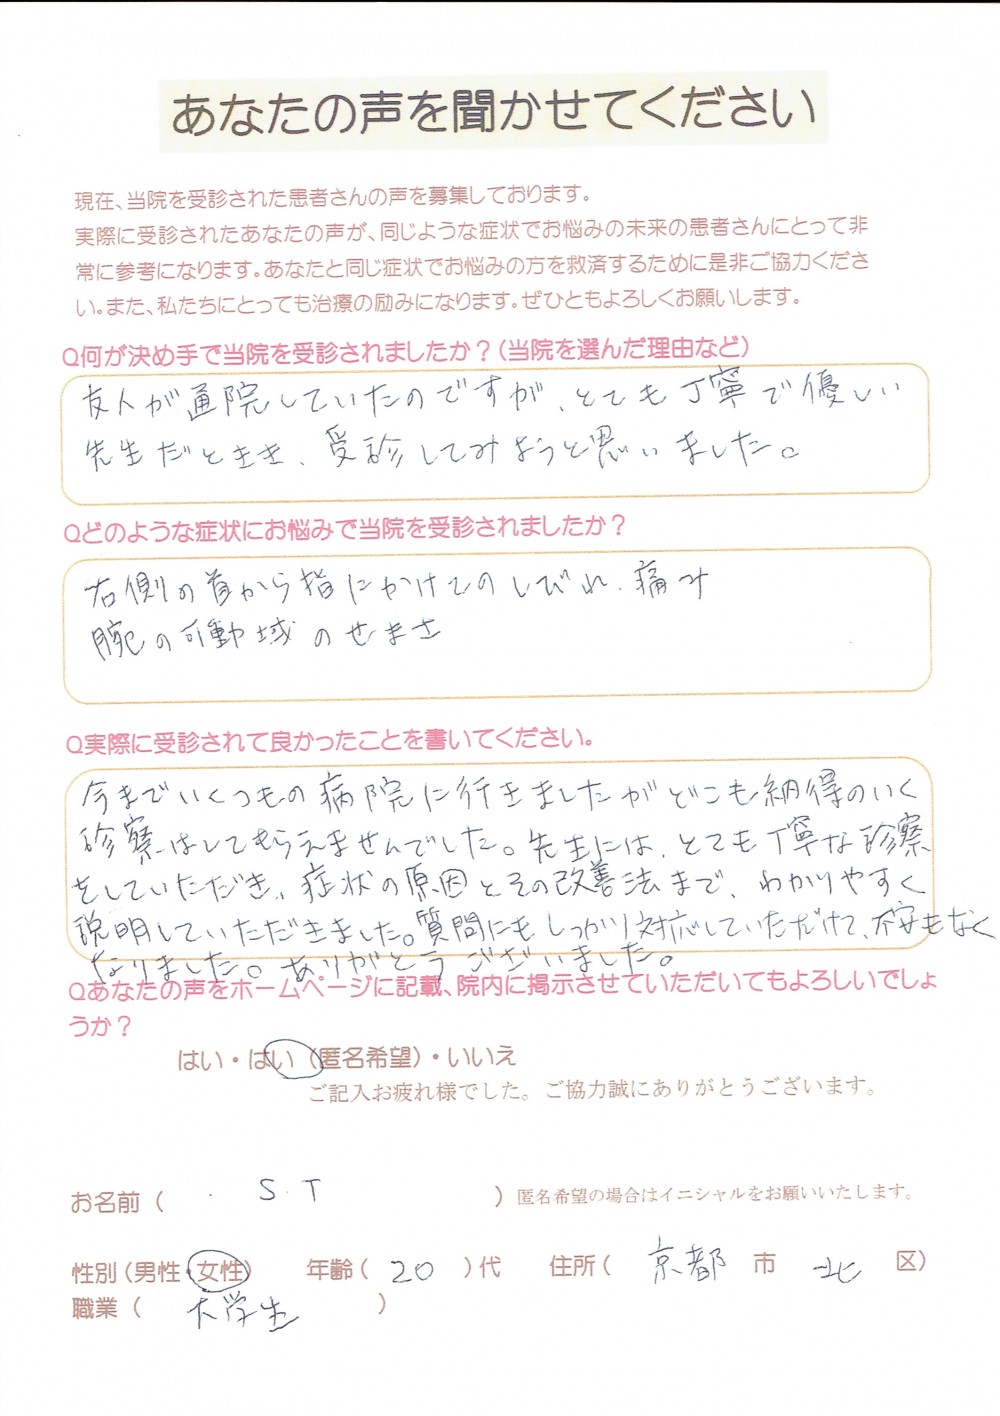 あなたの声を聞かせてください
現在、当院を受診された患者さんの声を募集しております。
実際に受診されたあなたの声が、同じような症状でお悩みの未来の患者さんにとって非
常に参考になります。あなたと同じ症状でお悩みの方を救済するために是非ご協力くださ
い。また、私たちにとっても治療の励みになります。ぜひともよろしくお願いします。
Q何が決め手で当院を受診されましたか？(当院を選んだ理由など)
友人が通院していたのですが、とても丁寧で優しい
先生だときき、受診してみようと思いました。
Qどのような症状にお悩みで当院を受診されましたか？
右側の首から指にかけてのしびれ、痛み
腕の可動域のせまさ
Q実際に受診されて良かったことを書いてください。
今までいくつもの病院に行きましたがどこも納得のいく
診察はしてもらえませんでした。先生には、とても丁寧な診察
をしていただき、症状の原因とその改善法まで、わかりやすく
説明していただきました。質問にもしっかり対応していただけて、不安もなく
なりました。ありがとうございました。
Qあなたの声をホームページに記載、院内に掲示させていただいてもよろしいでしょ
うか？
はい・はい（匿名希望）・いいえ
ご記入お疲れ様でした。ご協力誠にありがとうございます。
お名前（ S.T ）匿名希望の場合はイニシャルをお願いいたします。
性別(男性・女性) 年齢( 20 )代 住所( 京都 市 北 区)
職業（ 大学生 ）